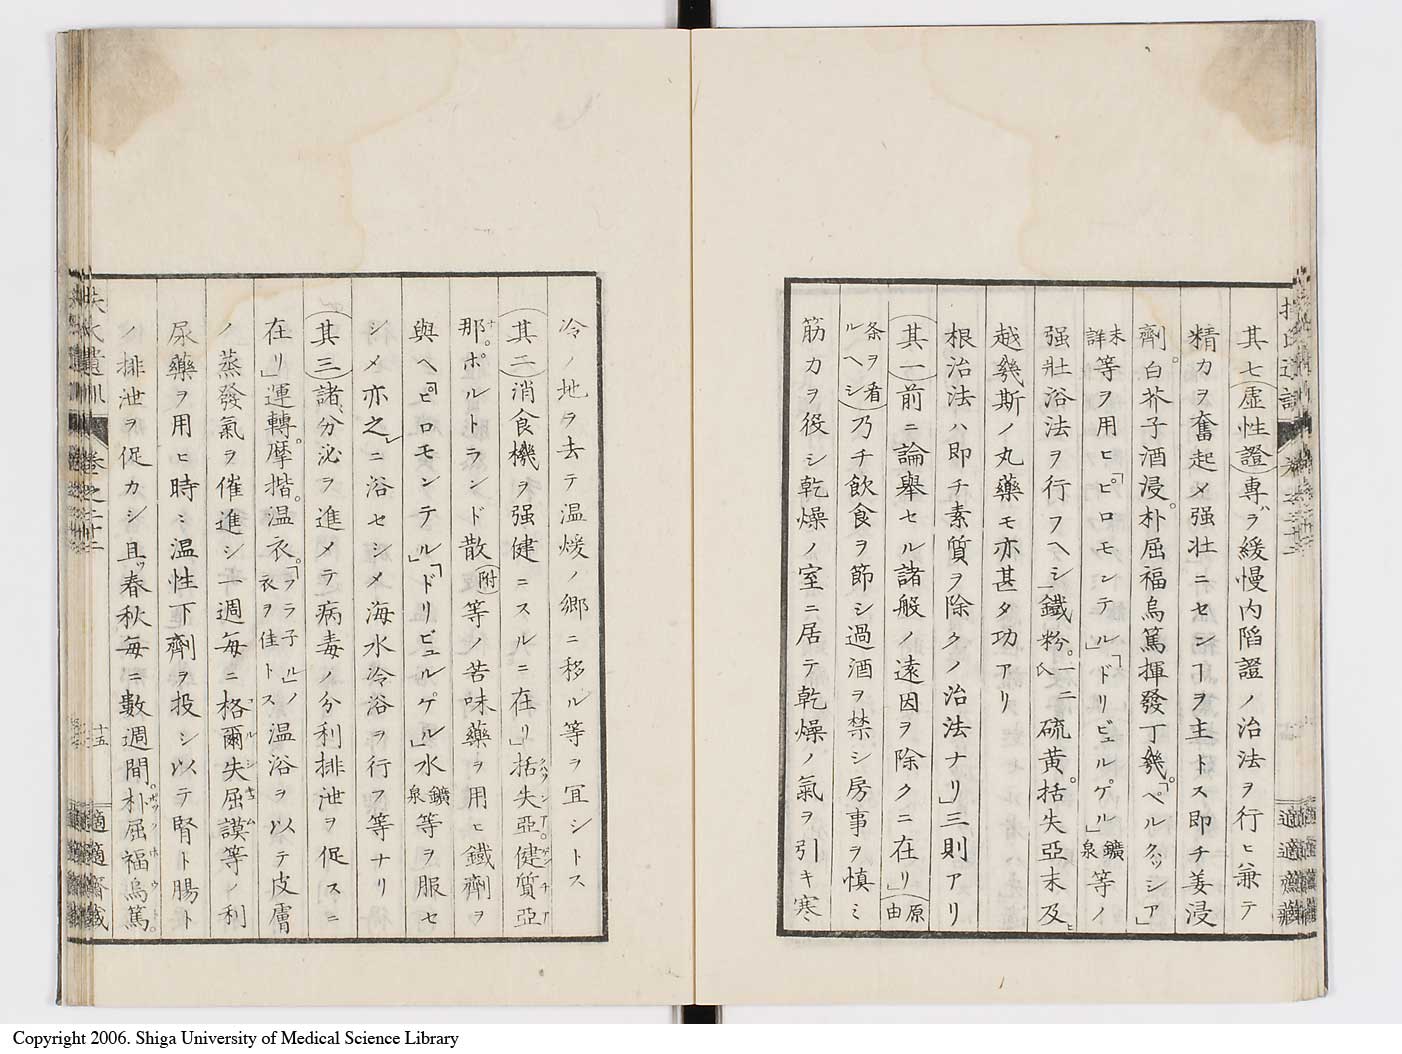 其七虚性證專ラ緩慢内陷證ノ治法ヲ行ヒ兼テ
精力ヲ奮起メ强壯ニセンヿヲ主トス即チ姜浸
劑。白芥子酒浸。朴屈福烏篤揮發丁幾。「ペルクッシア」
末詳等ヲ用ヒ「ピロモンテル」「ドリビュルゲル」鑛泉等ノ
强壯浴法ヲ行フヘシ」鐵粉。一二硫黄。括失亞末及ヒ
越幾斯ノ丸藥モ亦甚タ功アリ
根治法ハ即チ素質ヲ除クノ治法ナリ」三則アリ
其一前ニ論擧セル諸般ノ遠因ヲ除クニ在リ」原由
条ヲ看ルヘシ乃チ飲食ヲ節シ過酒ヲ禁シ房事ヲ慎ミ
筋力ヲ役シ乾燥ノ室ニ居テ乾燥ノ氣ヲ引キ寒
冷ノ地ヲ去テ温煖ノ郷ニ移ル等ヲ冝シトス
其二消食機ヲ强健ニスルニ在リ」括失亞。健質亞
那。ポルトランド散附等ノ苦味藥ヲ用ヒ鐵劑ヲ
與ヘ「ピロモンテル」「ドリビュルゲル」鑛泉水等ヲ服セ
シメ亦之レニ浴セシメ海水冷浴ヲ行フ等ナリ
其三諸分泌ヲ進メテ病毒ノ分利排泄ヲ促スニ
在リ」運轉。摩揩。温衣。「フラ子ル」ノ衣ヲ佳トス温浴ヲ以テ皮膚
ノ蒸發氣ヲ催進シ一週毎ニ格爾失屈謨等ノ利
尿藥ヲ用ヒ時ミ温性下劑ヲ投シ以テ腎ト腸ト
ノ排泄ヲ促カシ且ツ春秋毎ニ數週間。朴屈福烏篤。
扶氏遺訓
卷之二十二
十五
適適齋藏